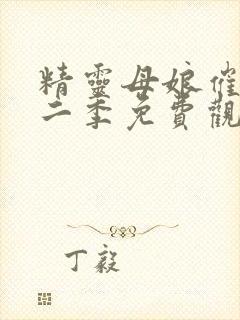 精靈母娘催
二季免費觀
丁毅